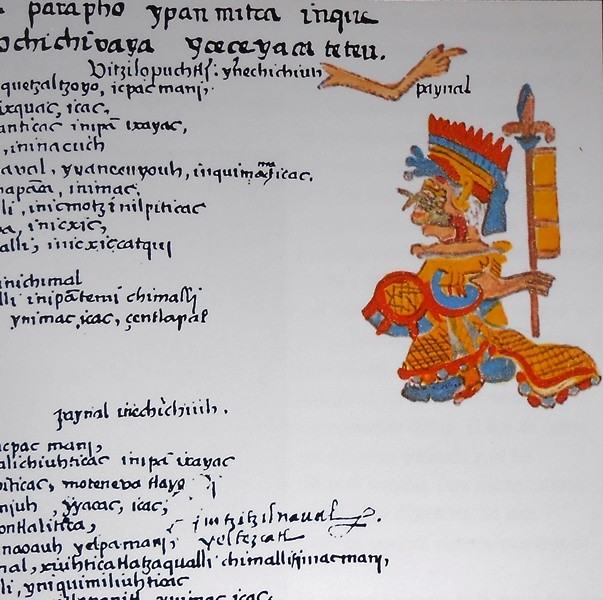 parapho ypan mitca inque
ochichivaya yceceyaca teteu.
Vitzilopuchtli: ynechichiuh
paynal
quetzaltzoyo, icpac manj,
ixquac, icac,
anticac inipā ixayac,
, ininacuch
inquimamaticac,
inimac,
li, inicmotzinilpiticac
inicxic,
alli, inicxic catqui
inichimal
lli inipā temi chimalli
ynimac, icac, centlapal
paynal inechichiuh.
icpac manj,
alichiuhticac inipā ixayac
piticac, moteneva tlayo
yyacac, icac,
ontlalitica, imtzitzilnaual
naoauh yelpa manj, yeltezcatl
nal, xiuhticatlatzaqualli chimalli inmac manj,
li, yniquimiliuhticac
ynimac icac.